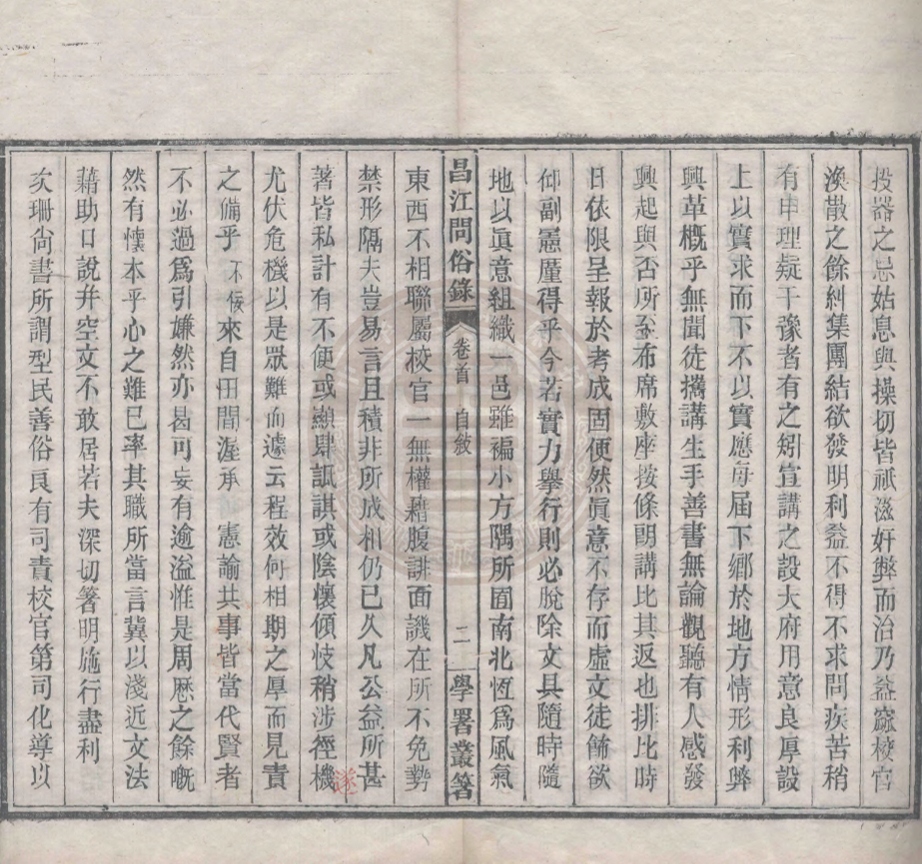 投器之忌姑息與操切皆祇滋奸弊而治乃益窳校官
渙散之餘糾集團結欲發明利益不得不求問疾苦稍
有申理疑干豫者有之矧宣講之設大府用意良厚設
上以實求而下不以實應每届下鄉於地方情形利弊
興革概乎無聞徒攜講生手善書無論觀聽有人感發
興起與否所至布席敷座按條朗講比其返也排比時
日依限呈報於考成固便然眞意不存而虛文徒飾欲
仰副憲廑得乎今若實力舉行則必脫除文具隨時隨
地以眞意組織一邑雖褊小方隅所囿南北恆爲風氣
昌江問俗錄 卷首 自敘 二 學署叢箸
東西不相聯屬校官一無權耤腹誹面譏在所不免勢
禁形隔夫豈易言且積非所成相仍已久凡公益所甚
著皆私計有不便或顯肆詆諆或陰懷傾忮稍涉徑機
遂
尤伏危機以是眾難而遽云程效何相期之厚而見責
之備乎不佞來自田間渥承 憲諭共事皆當代賢者
不必過爲引嫌然亦曷可妄有逾溢惟是周歷之餘嘅
然有懷本乎心之難已率其職所當言冀以淺近文法
藉助口說幷空文不敢居若夫深切箸明施行盡利
次珊尙書所謂型民善俗良有司責校官第司化導以